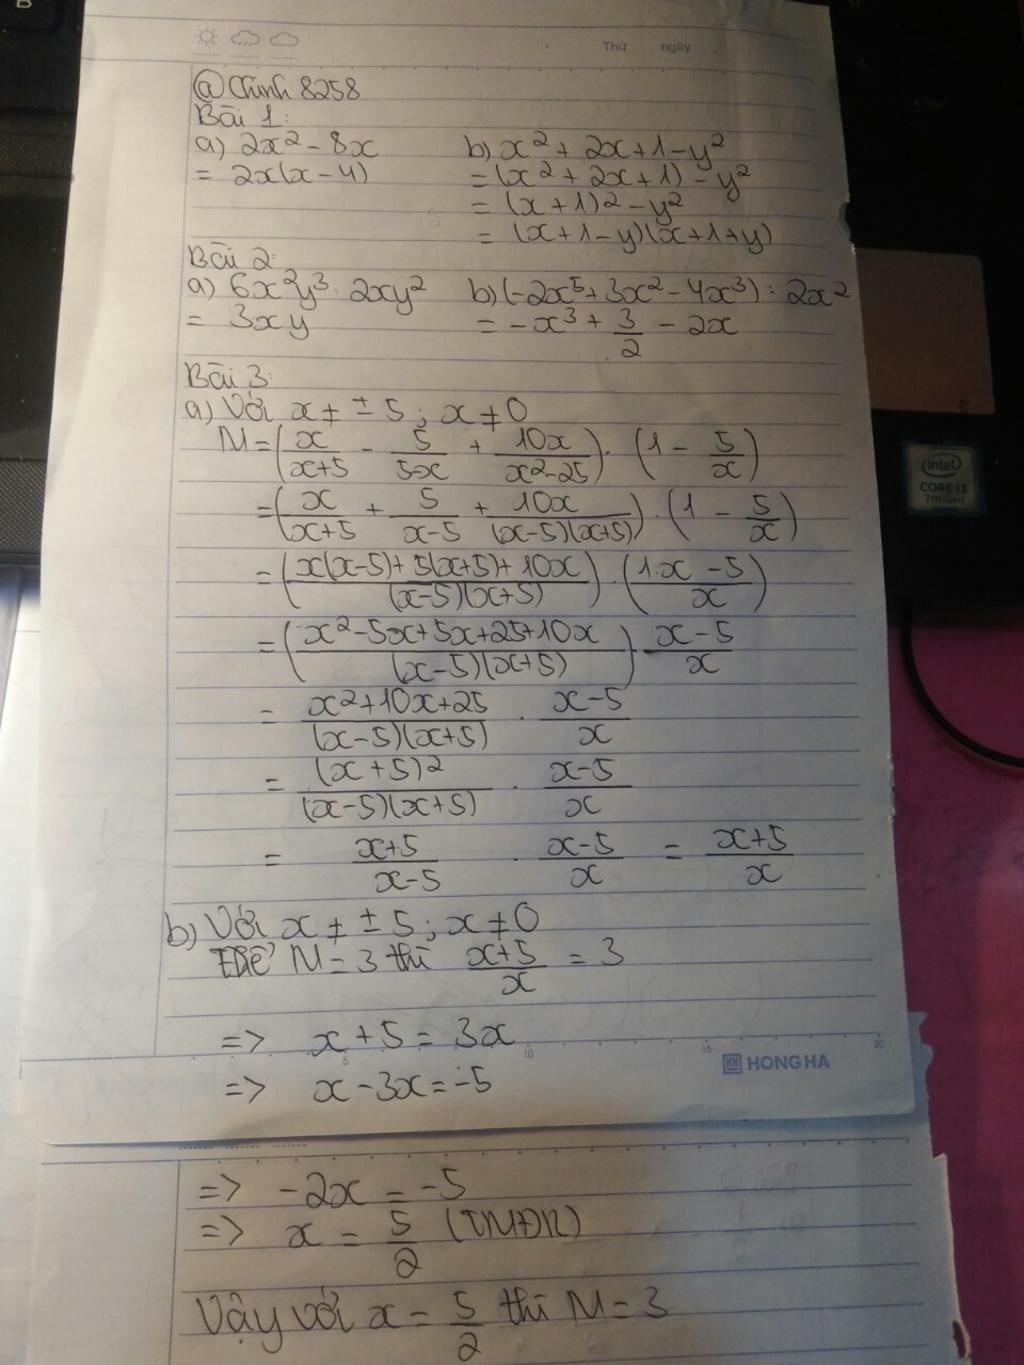 Thứ ngày
@Chinh 8258
Bài 1:
a) 2x² - 8x
= 2x(x - 4)
b) x² + 2x + 1 - y²
= (x² + 2x + 1) - y²
= (x + 1)2 - y²
= (x + 1 - y)(x + 1 + y)
Bài 2:
a) 6x²y³ : 2xy²
= 3xy
b) (-2x⁵ + 3x² - 4x³) : 2x²
= -x³ + 3/2 - 2x
Bài 3:
a) Với x ≠ ± 5 ; x ≠ 0
M = (x/(x+5) - 5/(5-x) + 10x/(x²-25)) · (1 - 5/x)
= (x/(x+5) + 5/(x-5) + 10x/((x-5)(x+5))) · (1 - 5/x)
= ((x(x-5) + 5(x+5) + 10x)/((x-5)(x+5))) · ((1·x - 5)/x)
= ((x² - 5x + 5x + 25 + 10x)/((x-5)(x+5))) · (x-5)/x
= (x² + 10x + 25)/((x-5)(x+5)) · (x-5)/x
= (x+5)2/((x-5)(x+5)) · (x-5)/x
= (x+5)/(x-5) · (x-5)/x = (x+5)/x
b) Với x ≠ ± 5 ; x ≠ 0
Để M = 3 thì (x+5)/x = 3
=> x + 5 = 3x
5 10 15 20
HONG HA
=> x - 3x = -5
=> -2x = -5
=> x = 5/2 (TMĐK)
Vậy với x = 5/2 thì M = 3
intel
CORE i3
7th Gen